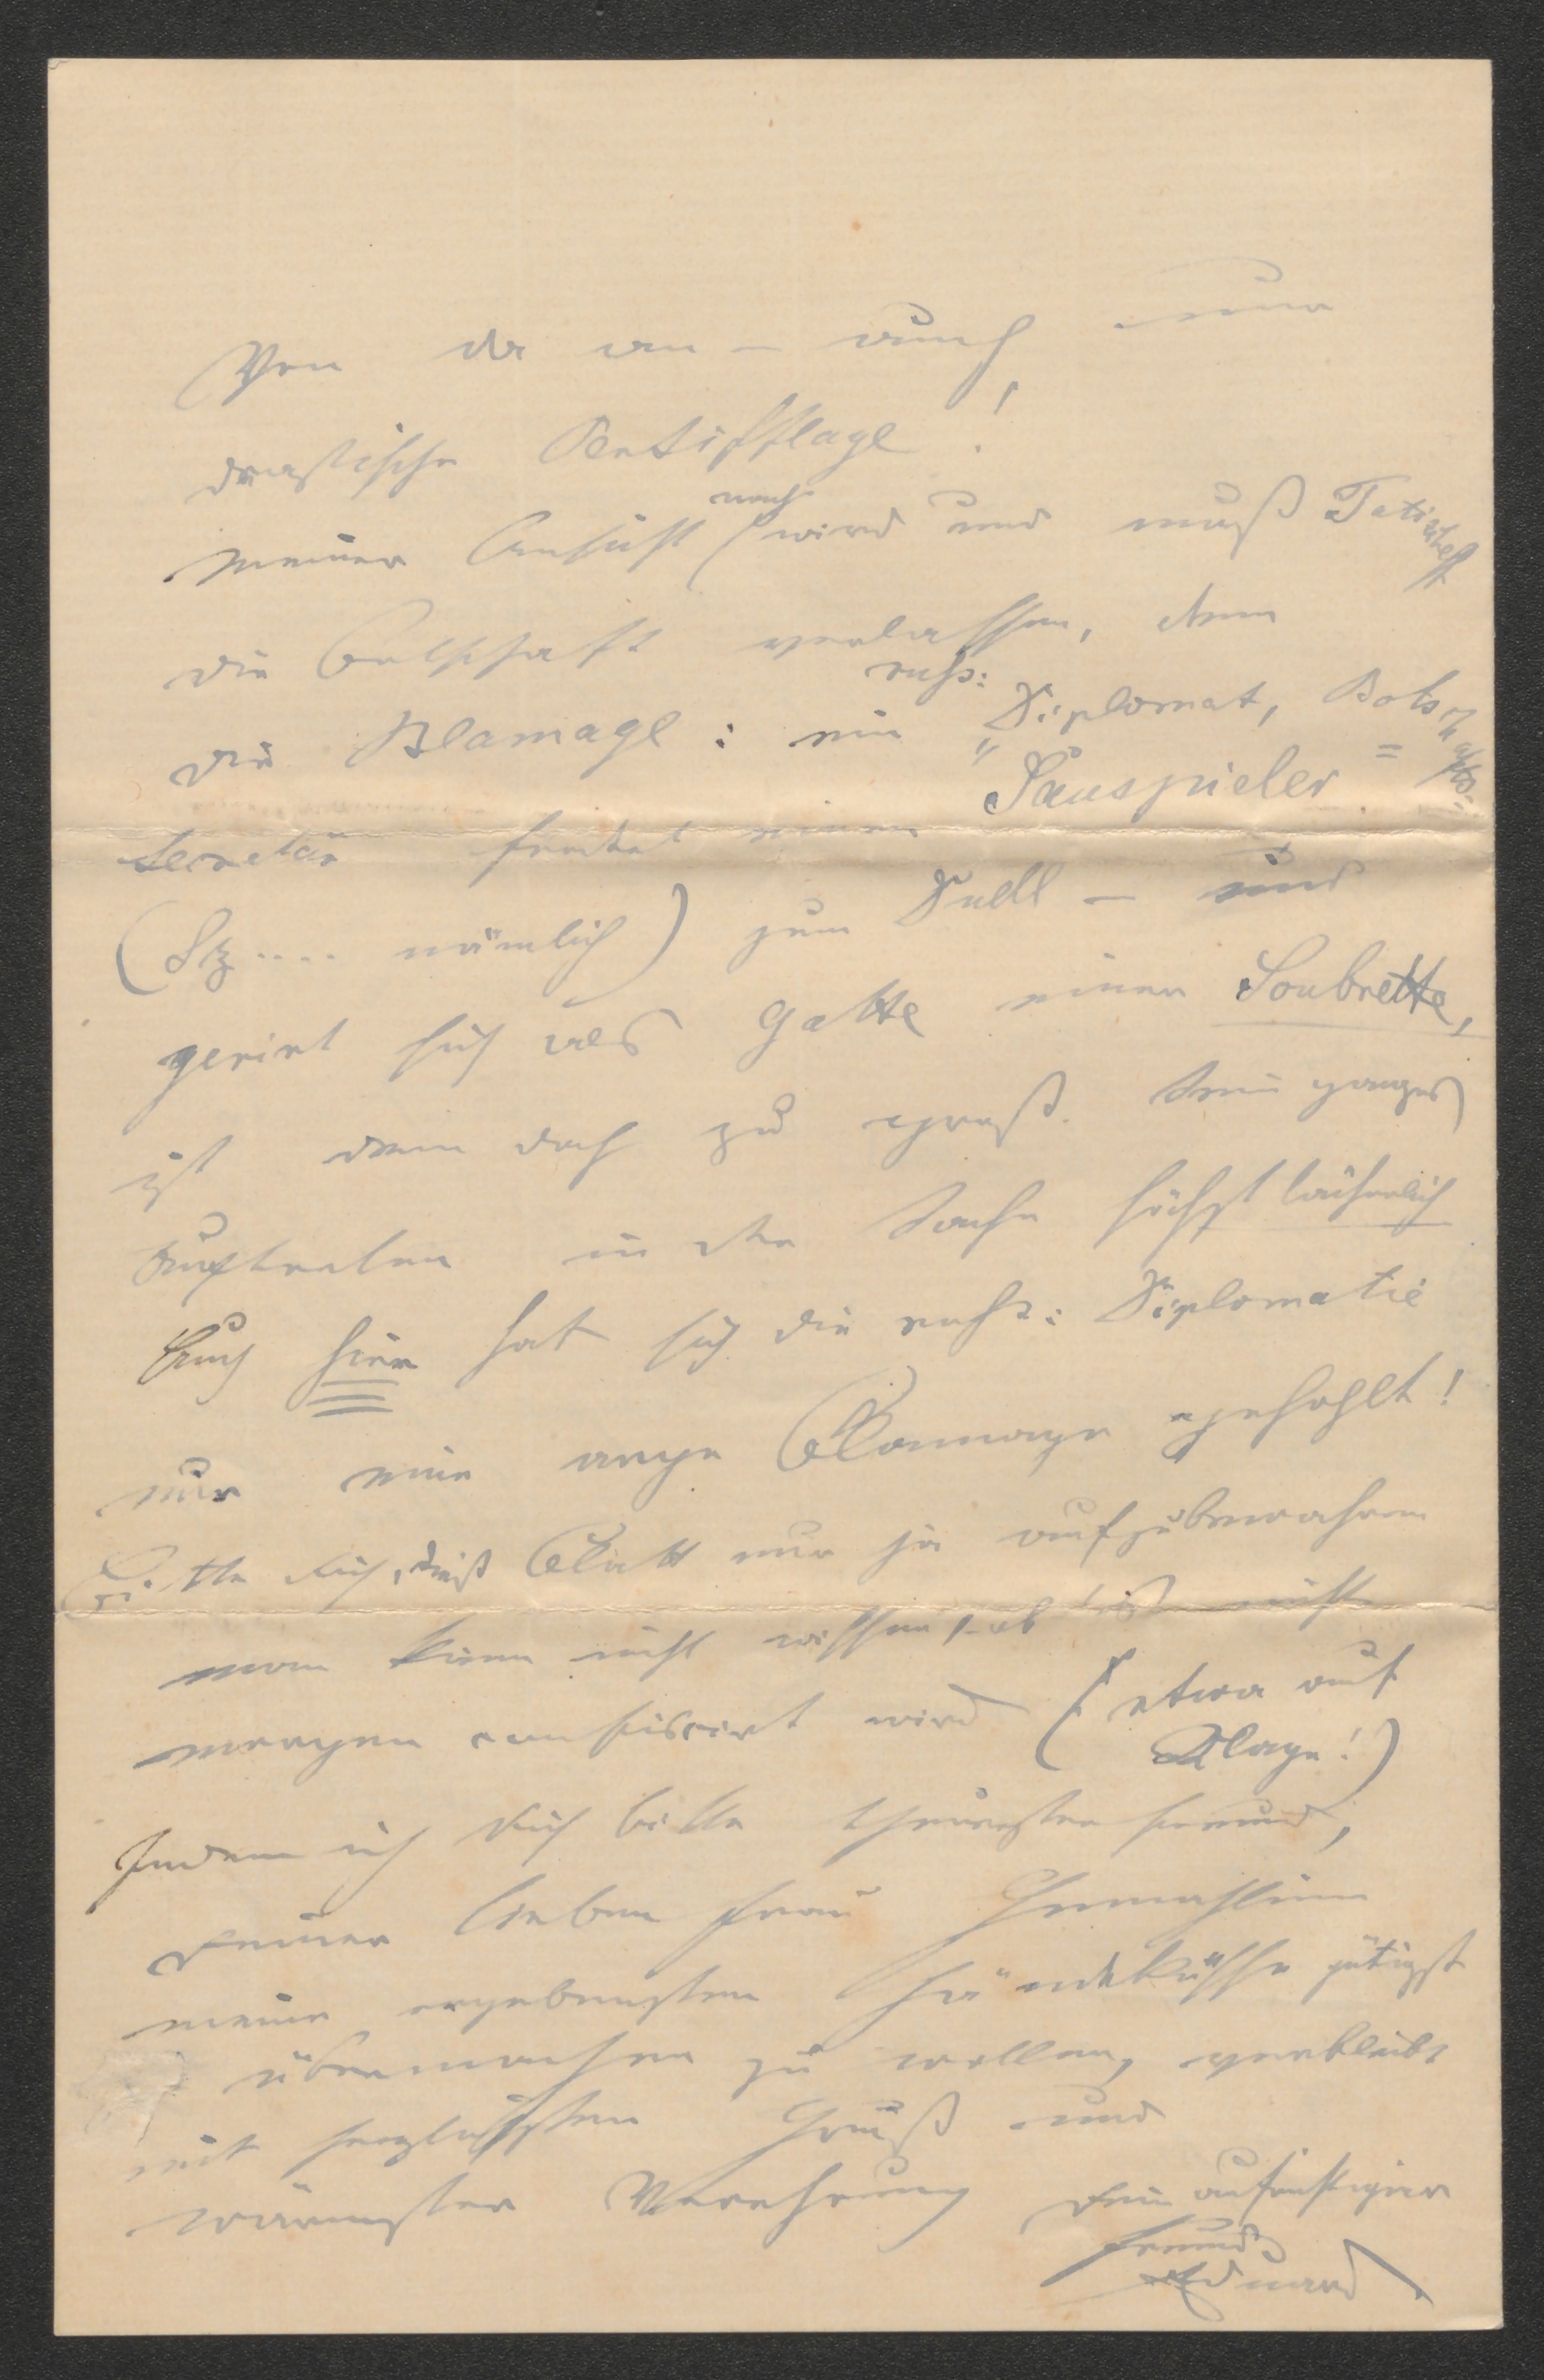 Von da an – auch eine
drastische Persifflage!
meiner Ansicht nach wird und muß Tatischeff
die Botschaft verlassen, denn
die Blamage: ein russ: Diplomat, Botschafts-
Secretär fordert einen „Sauspieler“
(Sz.... nämlich) zum Duell – und
gerirt sich als Gatte einer Soubrette,
ist denn doch zu groß. Sein ganzes
Auftreten in der Sache höchst lächerlich
Auch hier hat sich die russ: Diplomatie
nur eine arge Blamage geholt!
Bitte Dich, dieß Blatt nur ja aufzubewahren
man kann nicht wissen, ob es nicht
morgen confiscirt wird (etwa auf
Klage!)
Indem ich Dich bitte theuerster Freund,
Deiner lieben Frau Gemahlinn
meine ergebensten Handküsse gütigst
übermachen zu wollen, verbleibt
mit herzlichsten Gruß und
wärmster Verehrung Dein aufrichtiger
Freund
Eduard